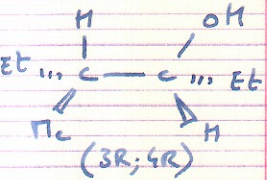 H OH
Et C C Et
Me H
(3R; 4R)